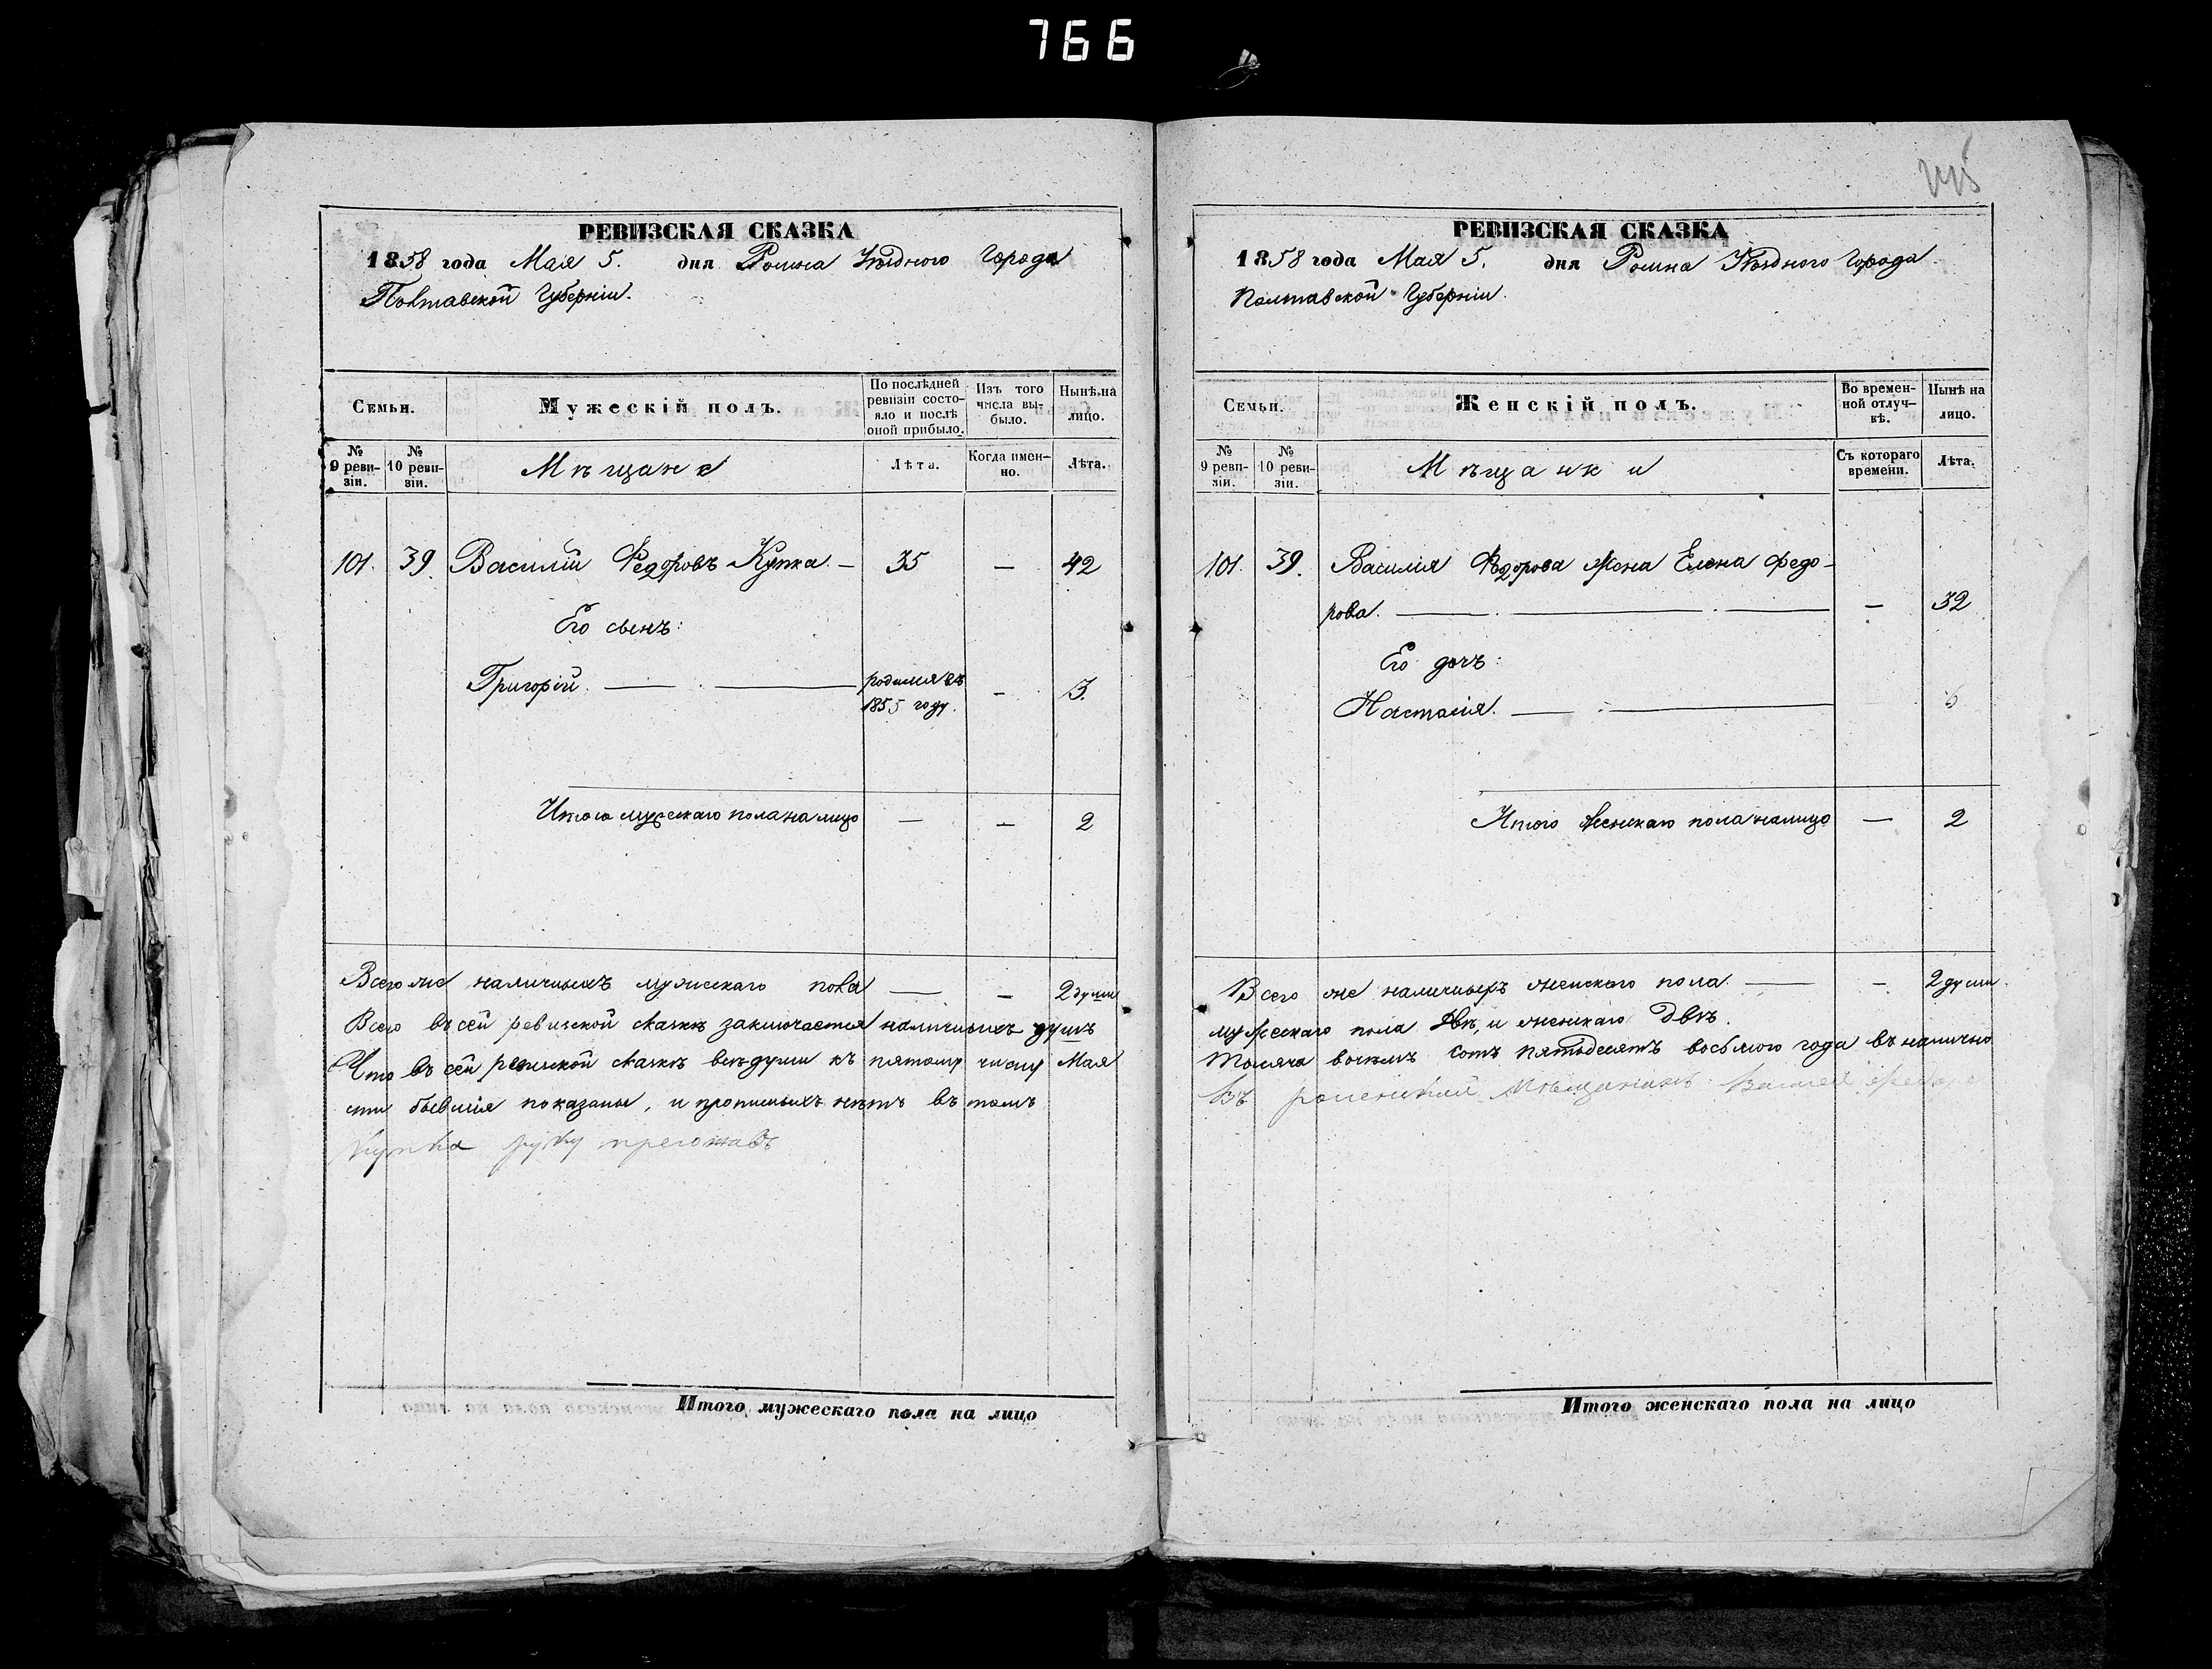 766
РЕВИЗСКАЯ СКАЗКА
1858 года Мая 5. дня Ромна Уѣзднаго Города
Полтавской Губерніи.
Семьи.
Мужескій полъ.
По послѣдней ревизіи состояло и послѣ оной прибыло.
Изъ того числа выбыло.
Нынѣ на лицо.
№ 9 ревизіи.
№ 10 ревизіи.
Мѣщане
Лѣта.
Когда именно.
Лѣта.
101. 39. Василій Федоровъ Купка. — 35 — 42
Его сынъ:
Григорій. — родился въ 1855 году. — 3.
Итого мужескаго пола на лицо — — 2
Всего же наличныхъ мужескаго пола — — 2 души
Всего въ сей ревизской сказкѣ заключается наличныхъ душъ
Что въ сей ревизской сказкѣ всѣ души къ пятому числу Мая
сти бывшія показаны, и прописныхъ нѣтъ въ томъ
Купка руку
Итого мужескаго пола на лицо
РЕВИЗСКАЯ СКАЗКА
1858 года Мая 5. дня Ромна Уѣзднаго Города.
Полтавской Губерніи.
Семьи.
Женскій полъ.
Во временной отлучкѣ.
Нынѣ на лицо.
№ 9 ревизіи.
№ 10 ревизіи.
Мѣщанки
Съ котораго времени.
Лѣта.
101. 39. Василія Федорова жена Елена Федо-
рова. — — 32
Его дочь:
Настасія. — 6
Итого женскаго пола налицо — 2
Всего же наличныхъ женскаго пола — — 2 души.
мужескаго пола двѣ, и женскаго двѣ.
Тысяча восемь сотъ пятьдесятъ восьмого года въ налично
Въ роменский мѣщанинъ Василей Федоро
Итого женскаго пола на лицо